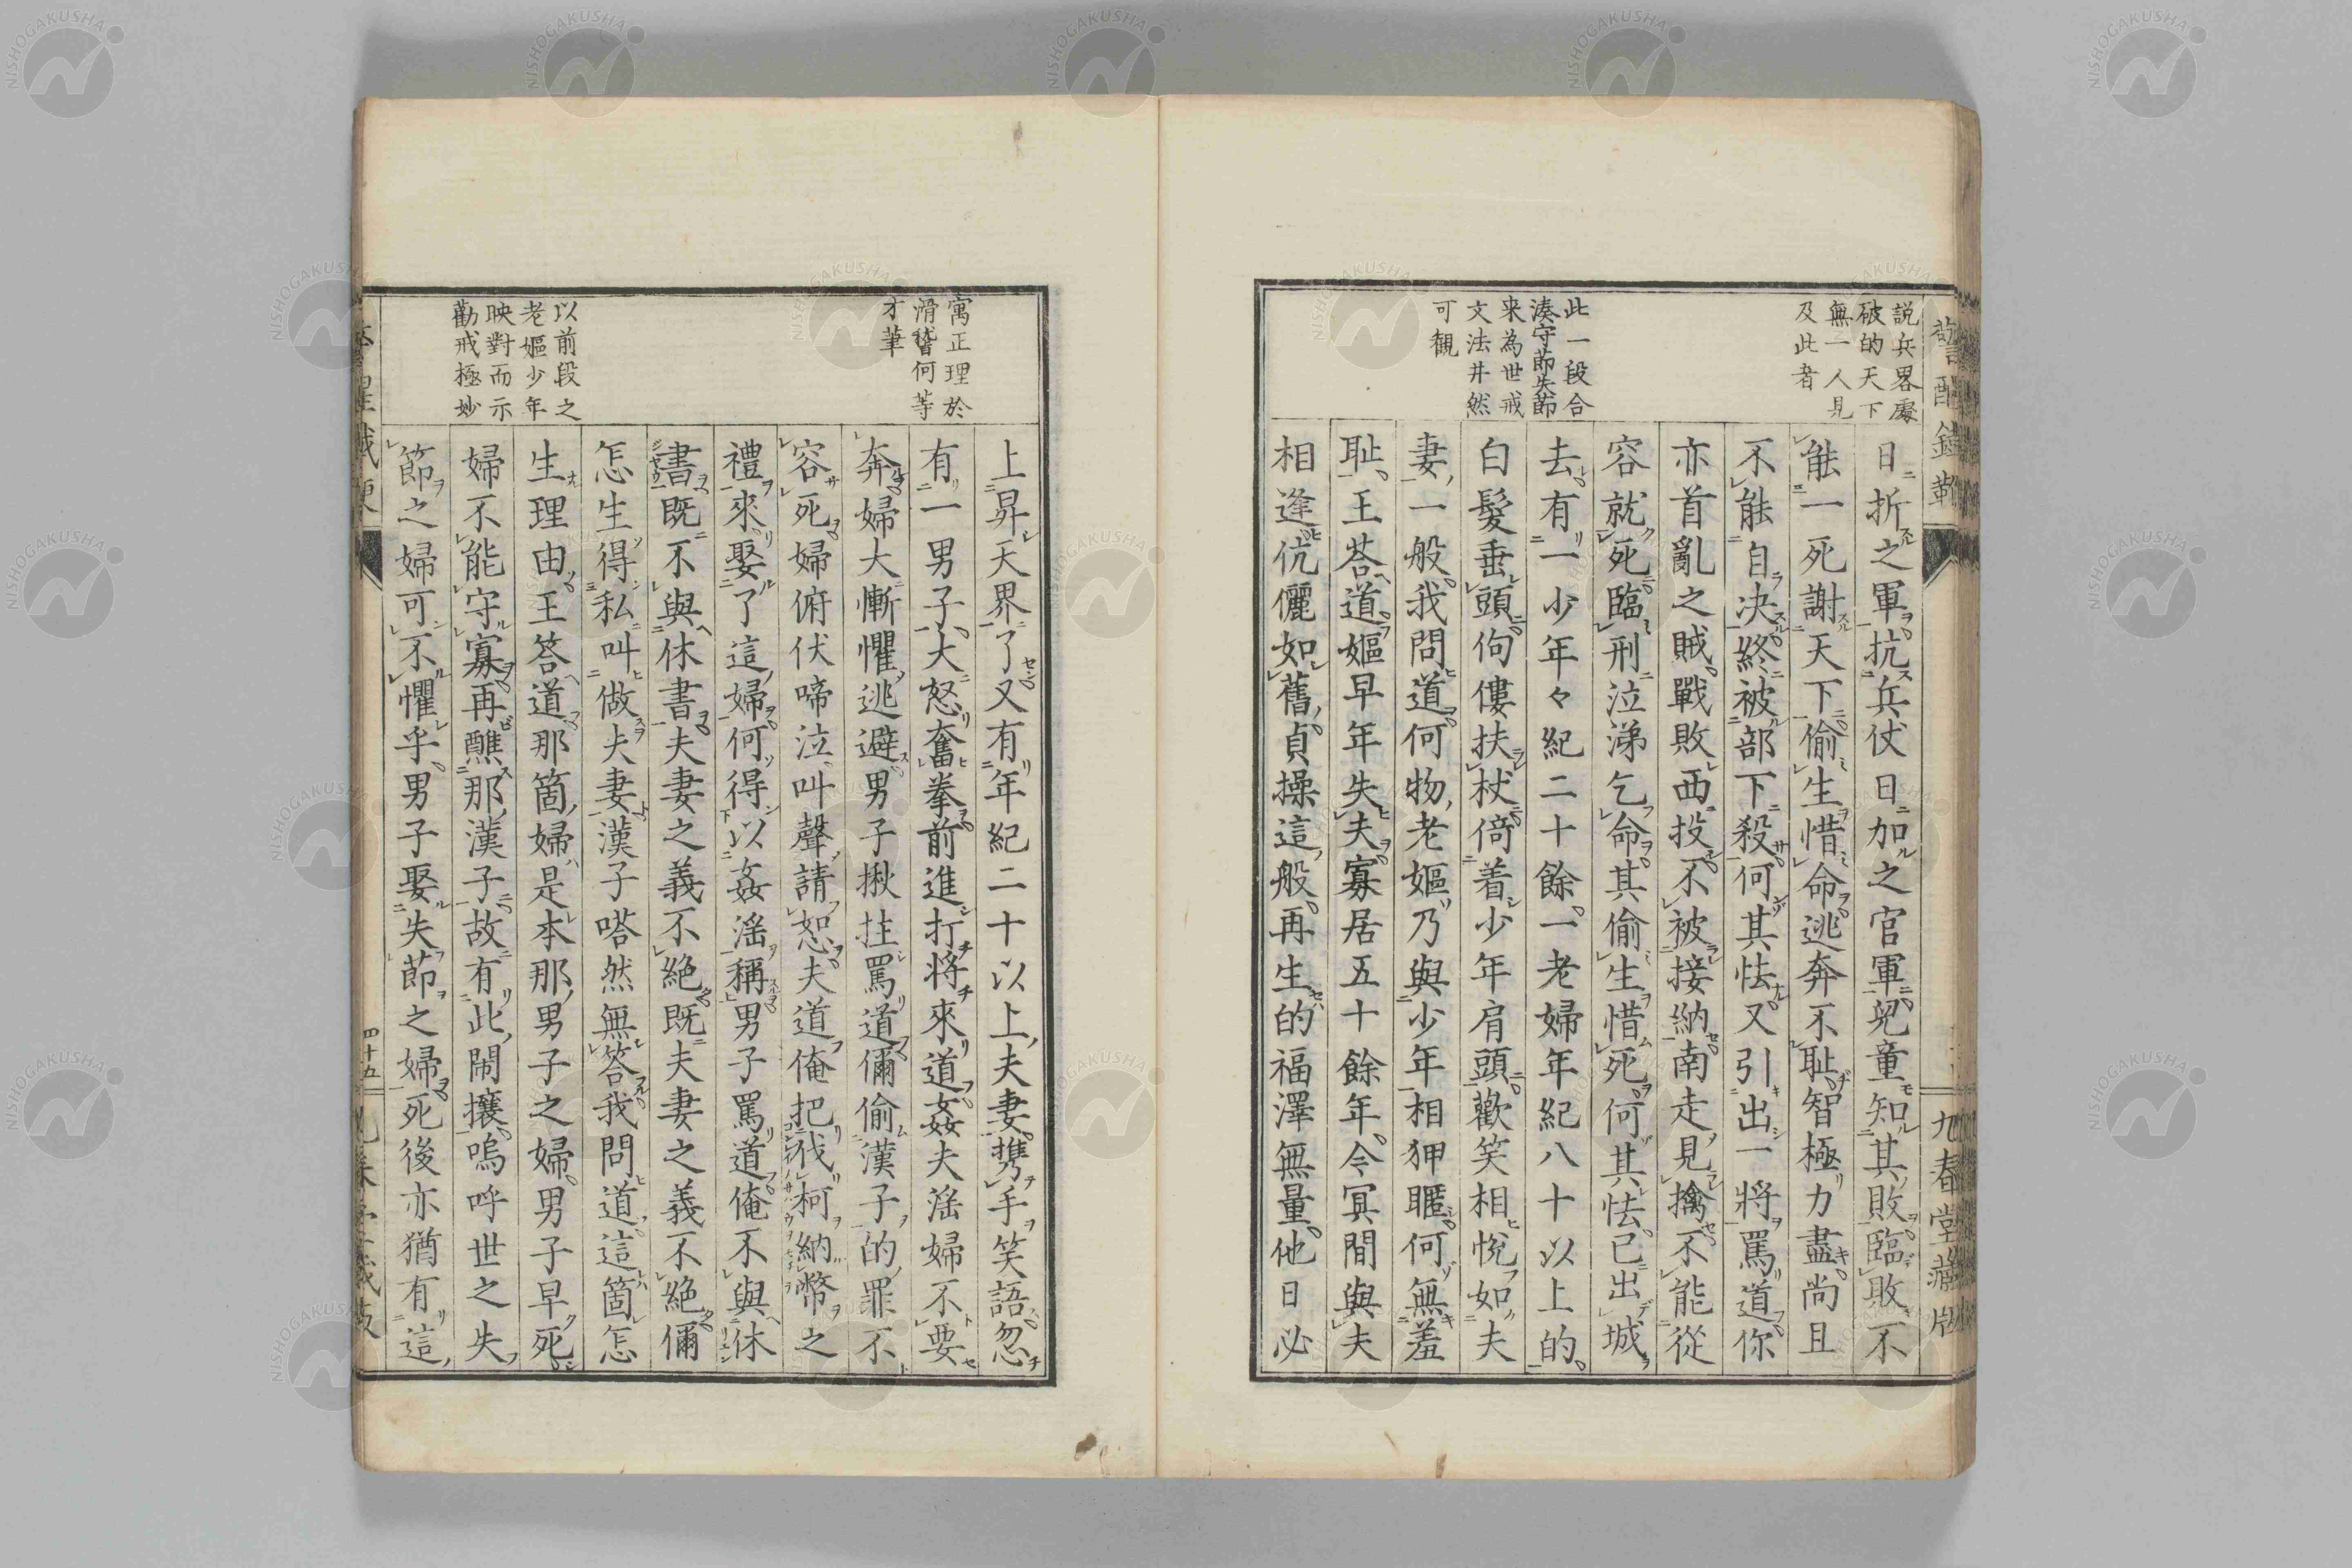 説兵畧處
破的天下
無一人見
及此者
此一段合
湊守莭失莭
来為世戒
文法井然
可観
日折之軍抗兵仗日加之官軍兒童知其敗臨敢不
能一死謝天下偷生惜命逃奔不恥智極力盡尚且
不能自决終被部下殺何其怯又引出一將罵道你
亦首亂之賊戰敗西投不被接納南走見擒不能從
容就死臨刑泣涕乞命其偷生惜死何其怯已出城
去有一少年々紀二十餘一老婦年紀八十以上的
白髮垂頭佝僂扶杖倚着少年肩頭歡笑相悅如夫
妻一般我問道何物老嫗乃與少年相狎暱何無羞
恥王荅道嫗早年失夫寡居五十餘年今冥間與夫
相逢伉儷如舊貞操這般再生的福澤無量他日必
九春堂藏版
寓正理於
滑稽何等
才筆
以前段之
老嫗少年
映對而示
勸戒極妙
上昇天界了又有年紀二十以上夫妻携手笑語忽
有一男子大怒奮拳前進打將來道姦夫淫婦不要
奔婦大慚懼逃避男子揪拄罵道儞偷漢子的罪不
容死婦俯伏啼泣叫聲請恕夫道俺把伐柯納幣之
禮來娶了這婦何得以姦淫稱男子罵道俺不與休
書既不與休書夫妻之義不絕既夫妻之義不絕儞
怎生得私叫做夫妻漢子嗒然無答我問道這箇怎
生理由王答道那箇婦是本那男子之婦男子早死
婦不能守寡再醮那漢子故有此鬧攘嗚呼世之失
節之婦可不懼乎男子娶失莭之婦死後亦猶有這
四十五